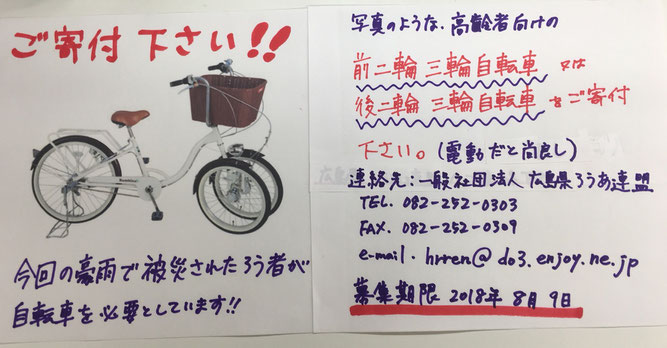 ご寄付 下さい!!
今回の豪雨で被災されたろう者が
自転車を必要としています!!
写真のような、高齢者向けの
前二輪 三輪自転車 又は
後二輪 三輪自転車 をご寄付
下さい。(電動だと尚良し)
連絡先:一般社団法人 広島県ろうあ連盟
TEL. 082-252-0303
FAX. 082-252-0309
e-mail. hrren@do3.enjoy.ne.jp
募集期限 2018年 8月 9日